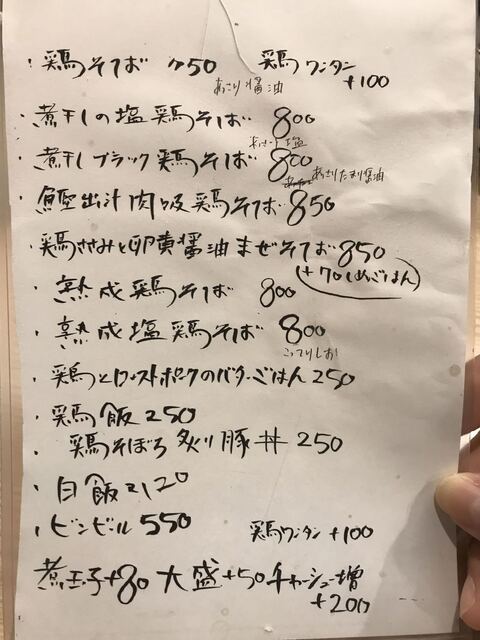 ・鶏そば 750 鶏ワンタン +100
あっさり醤油
・煮干しの塩鶏そば 800
あっさり塩
・煮干しブラック鶏そば 800
あっさりたまり醤油
・鰹出汁肉吸鶏そば 850
・鶏ささみと卵黄醤油まぜそば 850
(+70 〆めごはん)
・熟成鶏そば 800
・熟成塩鶏そば 800
こってりしお
・鶏とローストポークのバターごはん 250
・鶏飯 250
・鶏そぼろ炙り豚丼 250
・白飯 120
・ビンビール 550
鶏ワンタン +100
煮玉子+80 大盛+50 チャーシュー増
+200